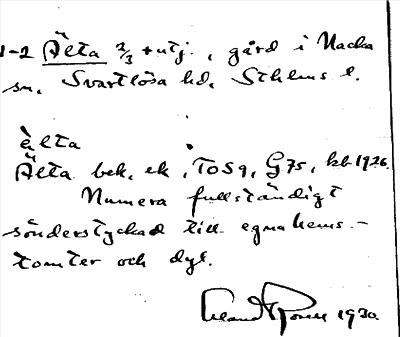 1-2 Älta 2/3 + utj., gård i Nacka
sn, Svartlösa hd, Sthlms l.
èlta
Älta bek, ek, TO59, G75, kb 1926.
Numera fullständigt
sönderstyckad till egnahems-
tomter och dyl.
1930